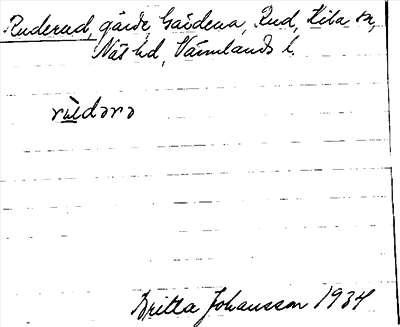 Ruderud, gärde, Gärdena, Rud, Kila sn,
Näs hd, Värmlands l.
rùdərə
Britta Johansson 1934